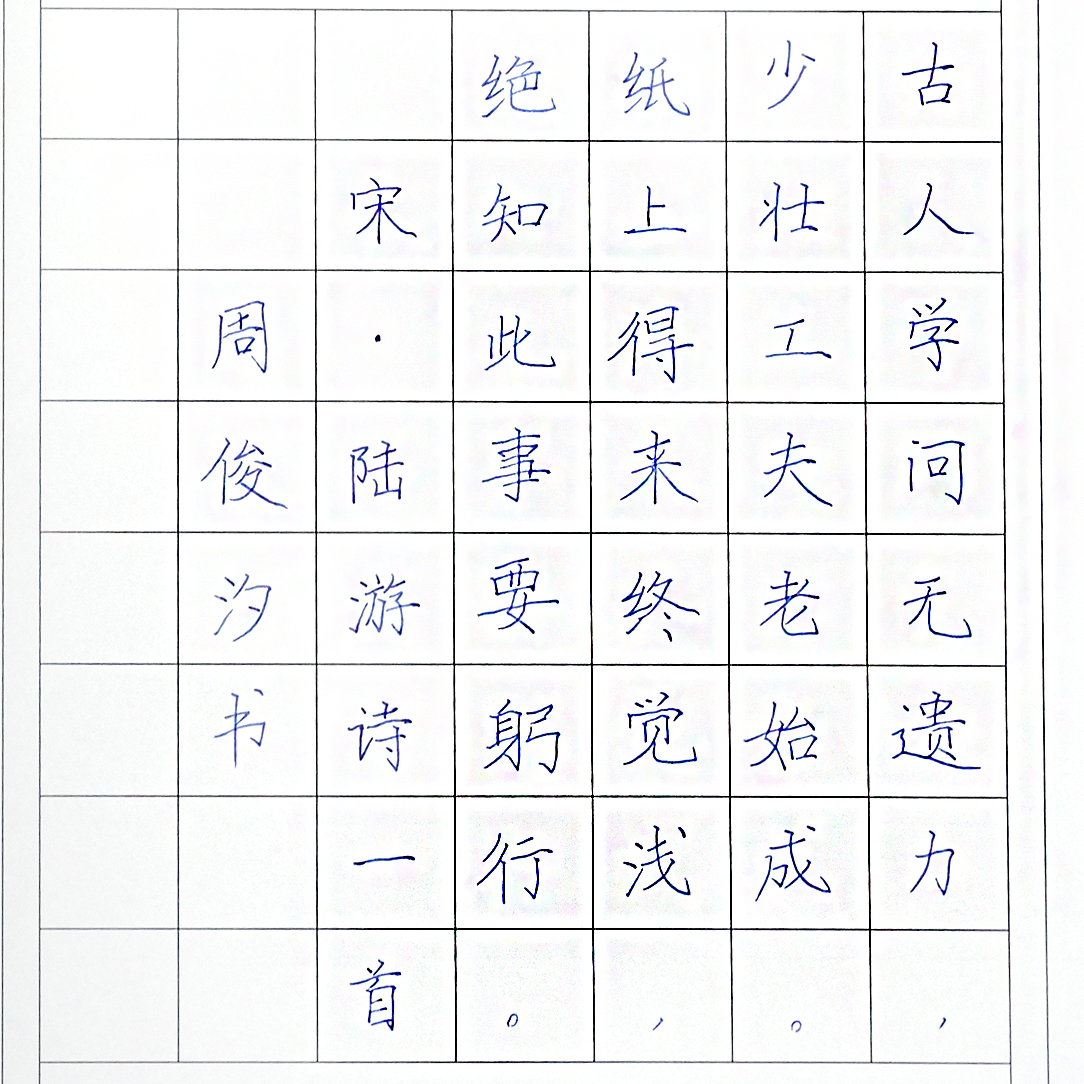 古人学问无遗力，
少壮工夫老始成。
纸上得来终觉浅，
绝知此事要躬行。
宋·陆游诗一首
周俊汐书